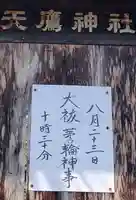 天鷹神社
八月二十三日
大祓茅輪神事
十時三十分